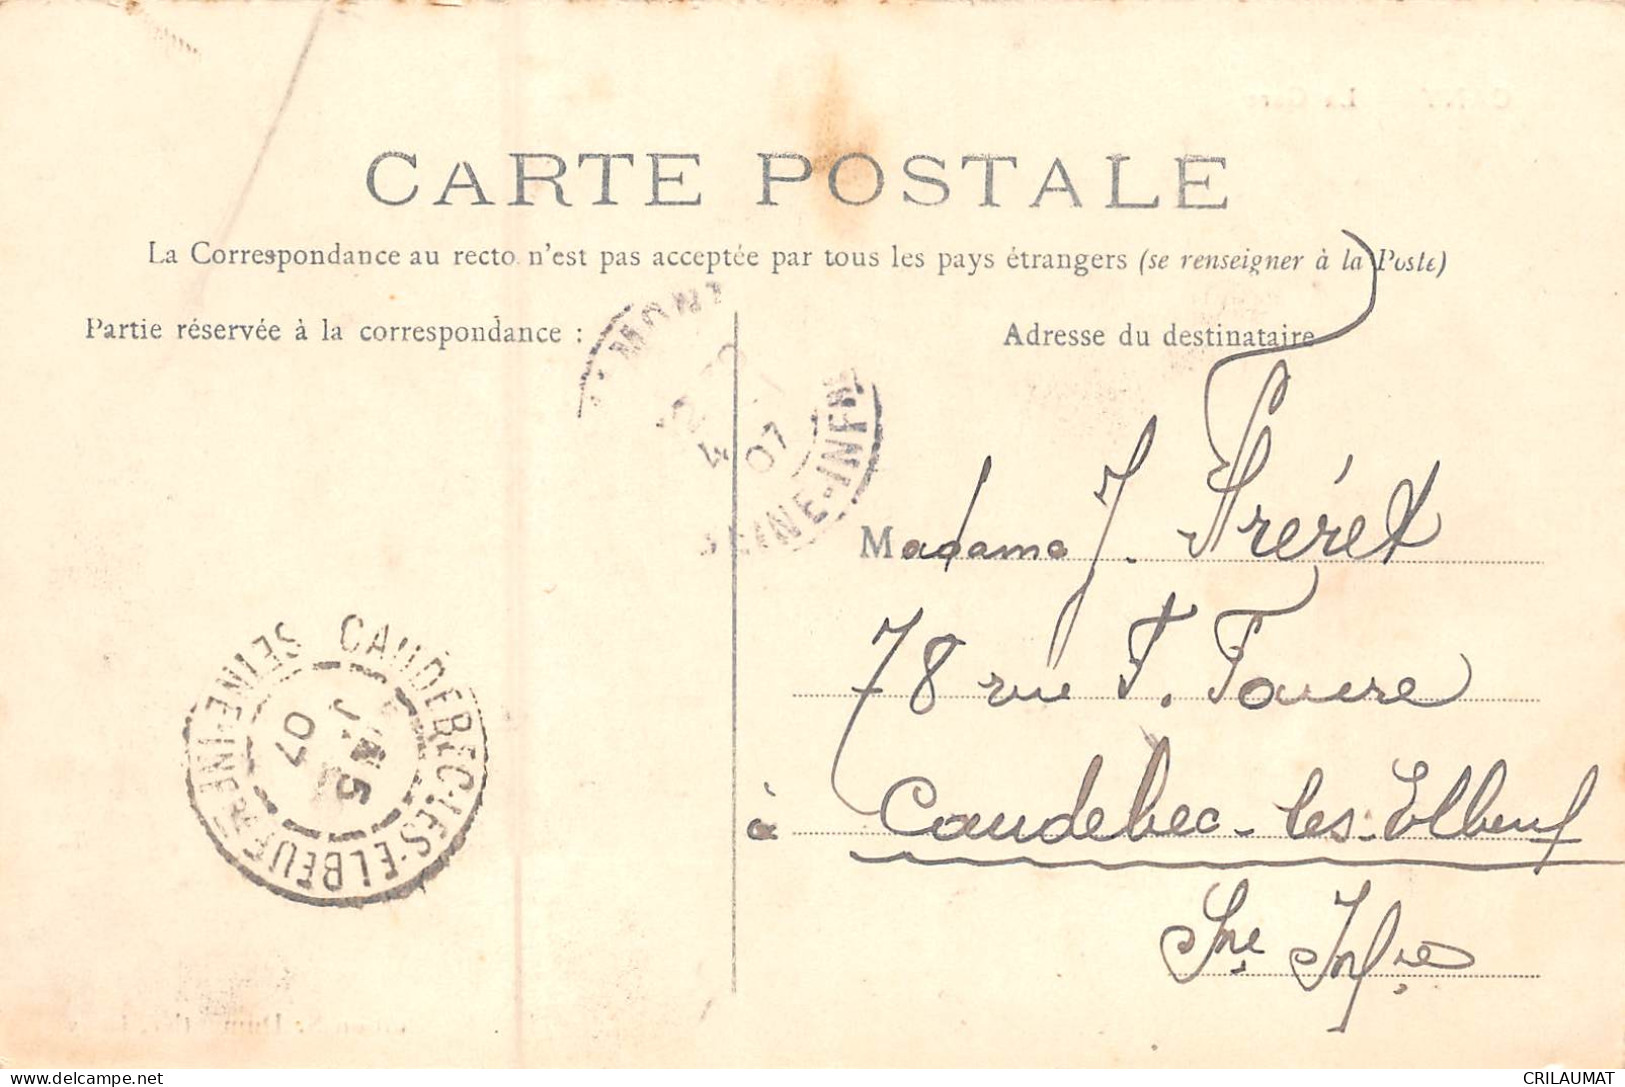 CARTE POSTALE
La Correspondance au recto n'est pas acceptée par tous les pays étrangers (se renseigner à la Poste)
Partie réservée à la correspondance :
Adresse du destinataire
Madame J. Fréret
78 rue F. Faure
à Caudebec-les-Elbeuf
Sne Infre
4 07
SEINE-INFRE
CAUDEBEC-LES-ELBEUF
SEINE-INFRE
5 07
CRILAUMAT